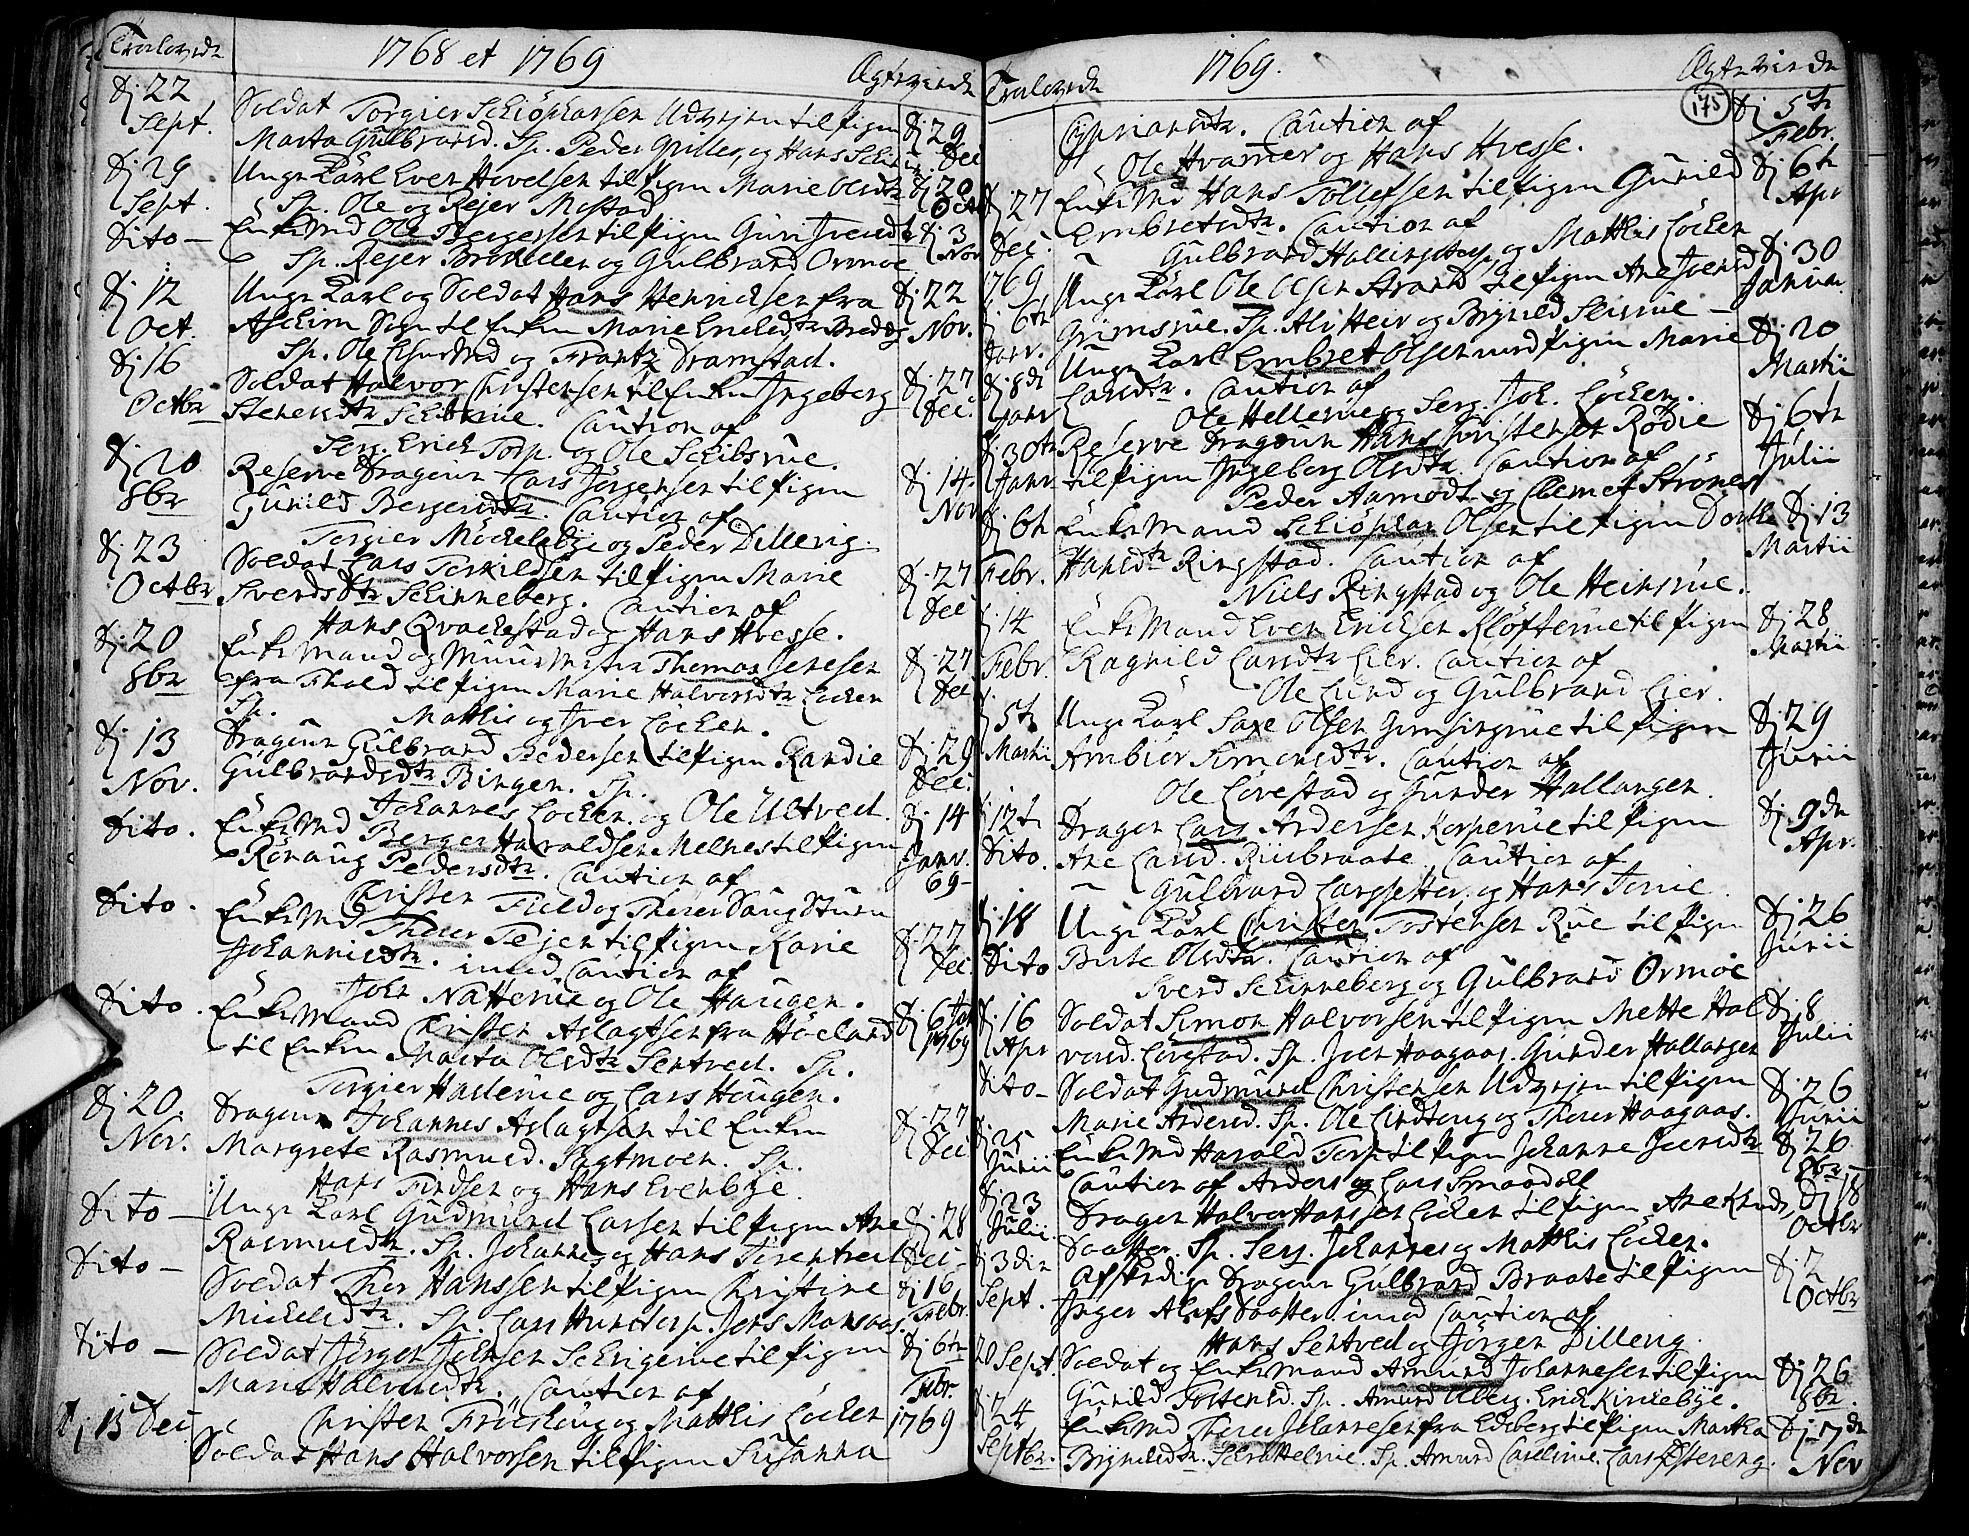 Trolovede
1768 et 1769
Ægteviede
d: 22 Sept.
Soldat Torgier Schiöphorsen Udvejen til pigen
Marta Gulbrands. Sp. Peder Griller, og Hans
d: 29 Dec
d: 29 Sept.
Unge Karl Even Hovelsen til pigen Marie Olsdtr
Sp. Ole og Rejer Mostad
d: 20 Oct
Dito —
Enke Md Ole Bergersen til pigen Guri
Sp. Rejer Brokeller og Gulbrand Ormöe
d: 3 Nov
d: 12 Oct.
Unge Karl og Soldat Hans Henrichsen fra
Aschim Sogn til Enken Marie Erichsdtr
Sp. Ole og Frantz Dramstad.
d: 22 Nov.
d: 16 Octbr
Soldat Halvor Christensen til Enken Ingeborg
Stenersdtr Schibsrue. Caution af
Serg. Erich Torp og Ole Schibsrue.
d: 27 Dec.
d: 20 8br
Reserve Dragoun Lars Jörgensen til pigen
Gunild Bergersdtr. Caution af
Torgier Möckelbye og Peder Dillevig.
d: 14 Nov
d: 23 Octbr
Soldat Lars Torkildsen til pigen Marie
Svendsdtr Schinneberg. Caution af
Hans Qvackestad og Hans Hvesse.
d: 27 Dec
d: 20 8br
Enke Mand og Muur Mester Thomas Jensen
fra Fhald til pigen Marie Halvorsdtr Löcken
Sp. Matthis og Iver Löcken.
d: 27 Dec
d: 13 Nov.
Dragoun Gulbrand Pedersen til pigen Randie
Gulbrandsdtr Bingen. Sp.
Johannes Löcken og Ole Ultved.
d: 29 Dec.
Dito.
Enke Md Berger Haraldsen Melnes til pigen
Rönaug Pedersdtr. Caution af
Christen Field og Thorer Haug
d: 14 Janr. 69-
Dito.
Enke Md Thorer Tejen til pigen Karie
Johannisdtr. imod Caution af
Joen Natterue og Ole Haugen.
d: 27 Dec
Dito.
Enke Mand Christen Aslagtsen fra Höeland
til Enken Marta Olsdtr Sentved. Sp.
Torgier Hallerue og Lars Haugen.
d: 6 Jan 1769
d: 20. Nov.
Dragoun Johannes Aslagtsen til Enken
Margrete Rasmusd. Sagtmoen. Sp.
Hans Findsen og Hans Evenbye.
d: 27 Dec
Dito —
Unge Karl Gudmund Larsen til pigen Ane
Rasmusdtr. Sp. Johannes og Hans
d: 28 Dec
Dito —
Soldat Thor Hanssen til pigen Christine
Michelsdtr. Sp. Lars Huntorp. Jens Monsaas.
d: 16 Febr
Dito —
Soldat Jörgen Joensen til pigen
Marie Halvorsdtr. Caution af
Christen Fröeshaug og Matthis Löcken
d: 6te Febr. 1769
d: 13 Dec
Soldat Hans Halvorsen til pigen Susanna
Trolovede
1769.
Ægteviede
175
Cypriansdtr. Caution af
Ole Hvamer og Hans Hvesse.
d: 5te Febr.
d: 27 Dec.
Enke Md Hans Tollefsen til pigen Gunild
Embretsdtr. Caution af
Gulbrand Hallingstorp og Matthis Löcken
d: 6te Apr
1769
d: 6te Janr.
Unge Karl Ole Olsen Strand til pigen Ane
Grimsrue. Sp. Alv Heir og
d: 30 Januar.
d: 8de Janr
Unge Karl Embret Olsen med pigen Marie
Larsdtr. Caution af
Ole Hellerue og Serg. Joh. Löcken.
d: 20 Martii
d: 30te Janr
Reserve Dragoun Hans Christensen Rödie
til pigen Ingeborg Olsdtr. Caution af
Peder Aamodt og
d: 6te Julii
d: 6te Febr.
Enke Mand Schiöphar Olsen til pigen Dorthe
Hansdtr Ringstad. Caution af
Niels Ringstad og Ole Heinsrue.
d: 13 Martii
d: 14 Febr.
Enke Mand Even Erichsen Klöfterue til pigen
Ragnild Larsdtr Lier. Caution af
Ole Lund og Gulbrand Lier.
d: 28 Martii
d: 5te Martii
Unge Karl Saxe Olsen til pigen
Ambiör Simensdtr. Caution af
Ole Lövestad og Gunder Hallangen.
d: 29 Junii
d: 12te Dito.
Dragon Lars Andersen Korperue til pigen
Ane Larsd. Riisbraate. Caution af
Gulbrand Largsetter, og Hans Tenie.
d: 9de Apr.
d: 18 Dito
Unge Karl Christen Tostensen Rue til pigen
Birte Olsdtr. Caution af
Svend Schinneberg og Gulbrand Ormöe
d: 26 Junii
d: 16 Apr
Soldat Simon Halvorsen til pigen Mette Hal
vorsd. Lövestad. Sp. Joen Haagaas. Gunder Hallangen
d: 8 Julii
Dito —
Soldat Gudmund Christensen Udvejen til pigen
Marie Andersd. Sp. Ole Lindhaug og Thorer Haagaas.
d: 26 Junii
d: 25 Junii
Enke Md Harald Torp til pigen Johanne
Caution af Anders og Lars Smaadöl
d: 26 8br
d: 23 Julii
Dragon Halvor Hanssen Löcken til pigen Ane
Daatter. Sp. Serg. Johannes og Matthis Löcken.
d: 18 Octbr
d: 3die Sept.
Afskedige Dragoun Gulbrand Braate til pigen
Inger Alufs Daatter imod Caution af
Hans Sentved og Jörgen Dillevig.
d: 2 Octbr
20 Sept
Soldat og Enke Mand Amund Johannesen til pigen
Gunild Tostensd. Sp. Amund Ulberg. Erich Kirkebye.
d: 26 8br.
d: 24 Septbr.
Enke Md Thorer Johannesen fra Edsberg til pigen Martha
Brynildsdtr. Schrattelrue. Sp. Amund Lars Östereng.
d: 17de Nov